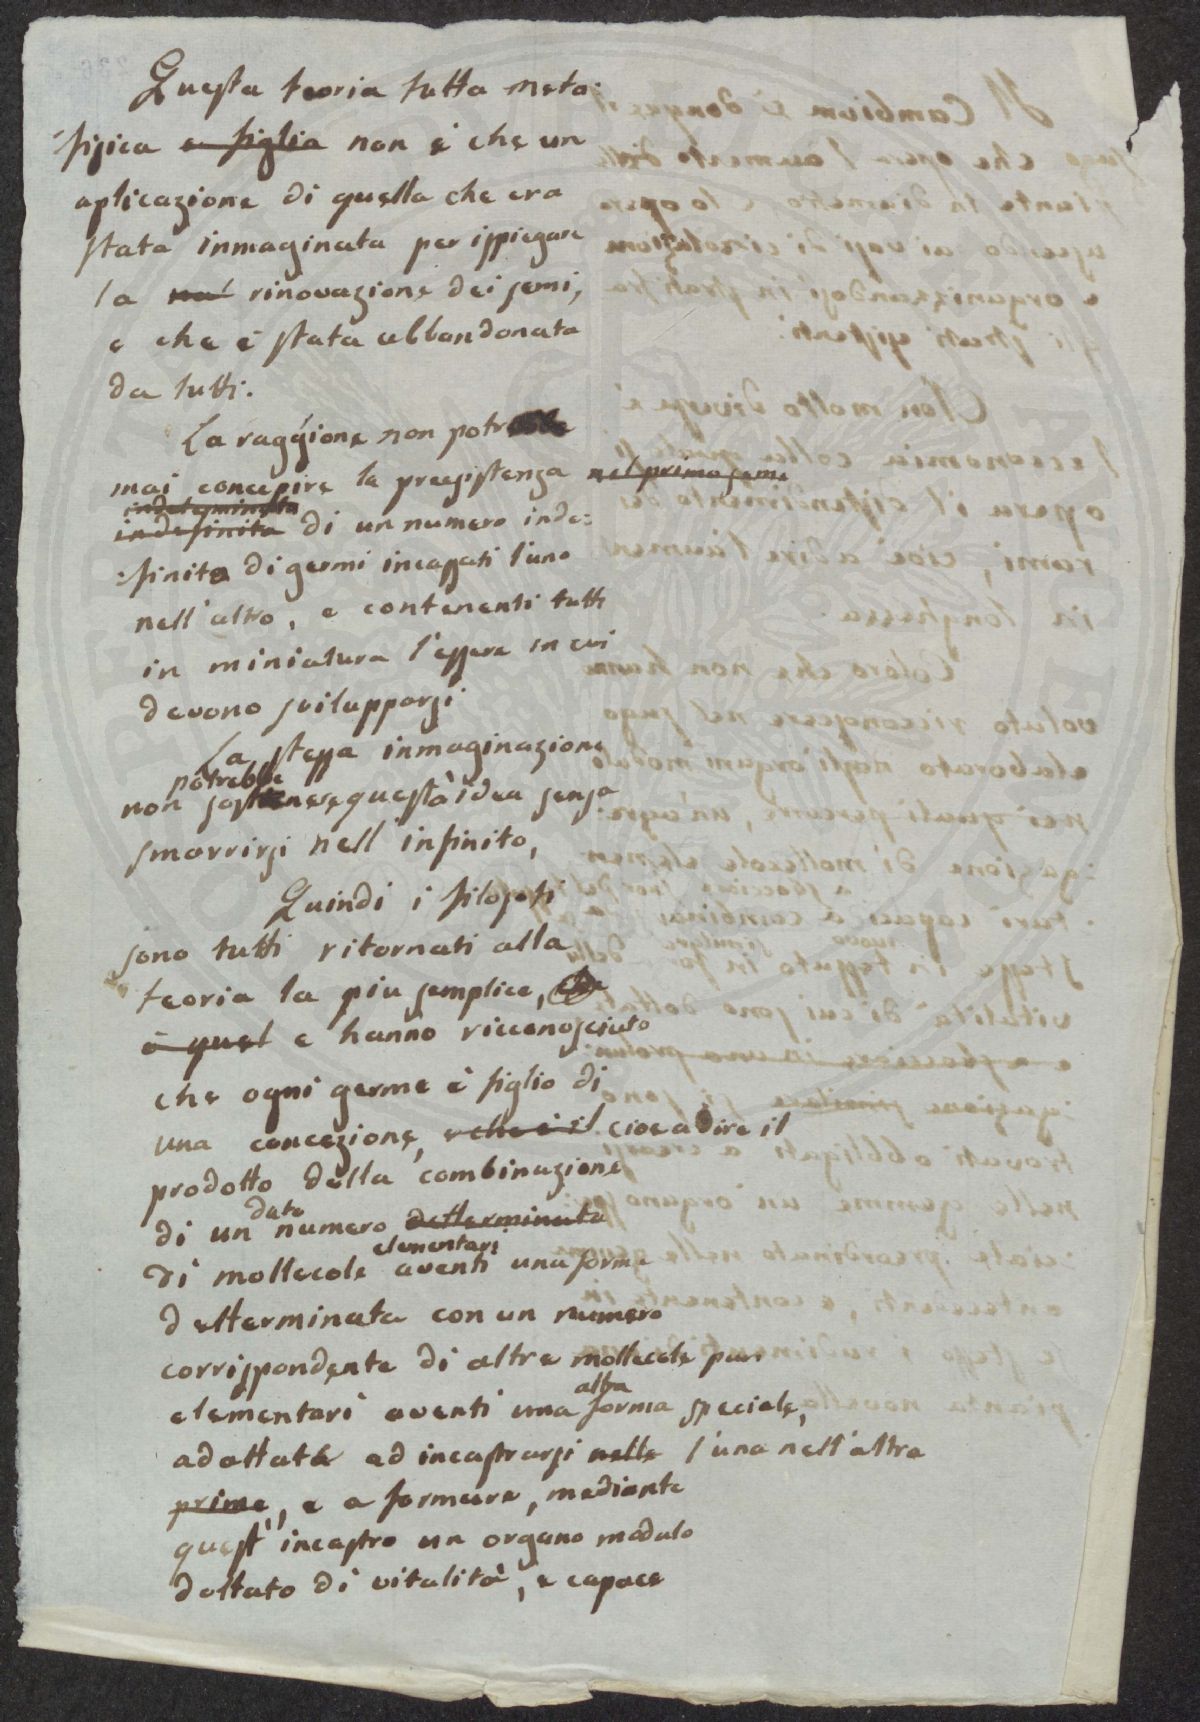 Questa teoria tutta meta:
:fisica e figlia non è che un
aplicazione di quella che era
stata inmaginata per ispiegare
la rinovazione dei semi,
e che è stata abbandonata
da tutti.
La raggione non potrebbe
mai concepire la preesistenza nel primo seme
indeterminata
indefinita di un numero inde:
:finito di germi incassati l'uno
nell'altro, e contenenti tutti
in miniatura l'essere in cui
devono svilupparsi
La stessa inmaginazione
potrebbe
non sostenere questa idea senza
smarrirsi nell'infinito,
Quindi i filosofi
sono tutti ritornati alla
teoria la piu semplice, che
è quel e hanno riccenosciuto
che ogni germe è figlio di
una concezione, e che è il cioe a dire il
prodotto della combinazione
dato
di un numero detterminato
elementari
di mollecole aventi una forma
detterminata con un numero
corrispondente di altre mollecole pur
altra
elementari aventi una forma speciale,
adattata ad incastrarsi nelle l'una nell'altra
prime, e a formare, mediante
quest'incastro un organo modulo
dottato di vitalità, e capace